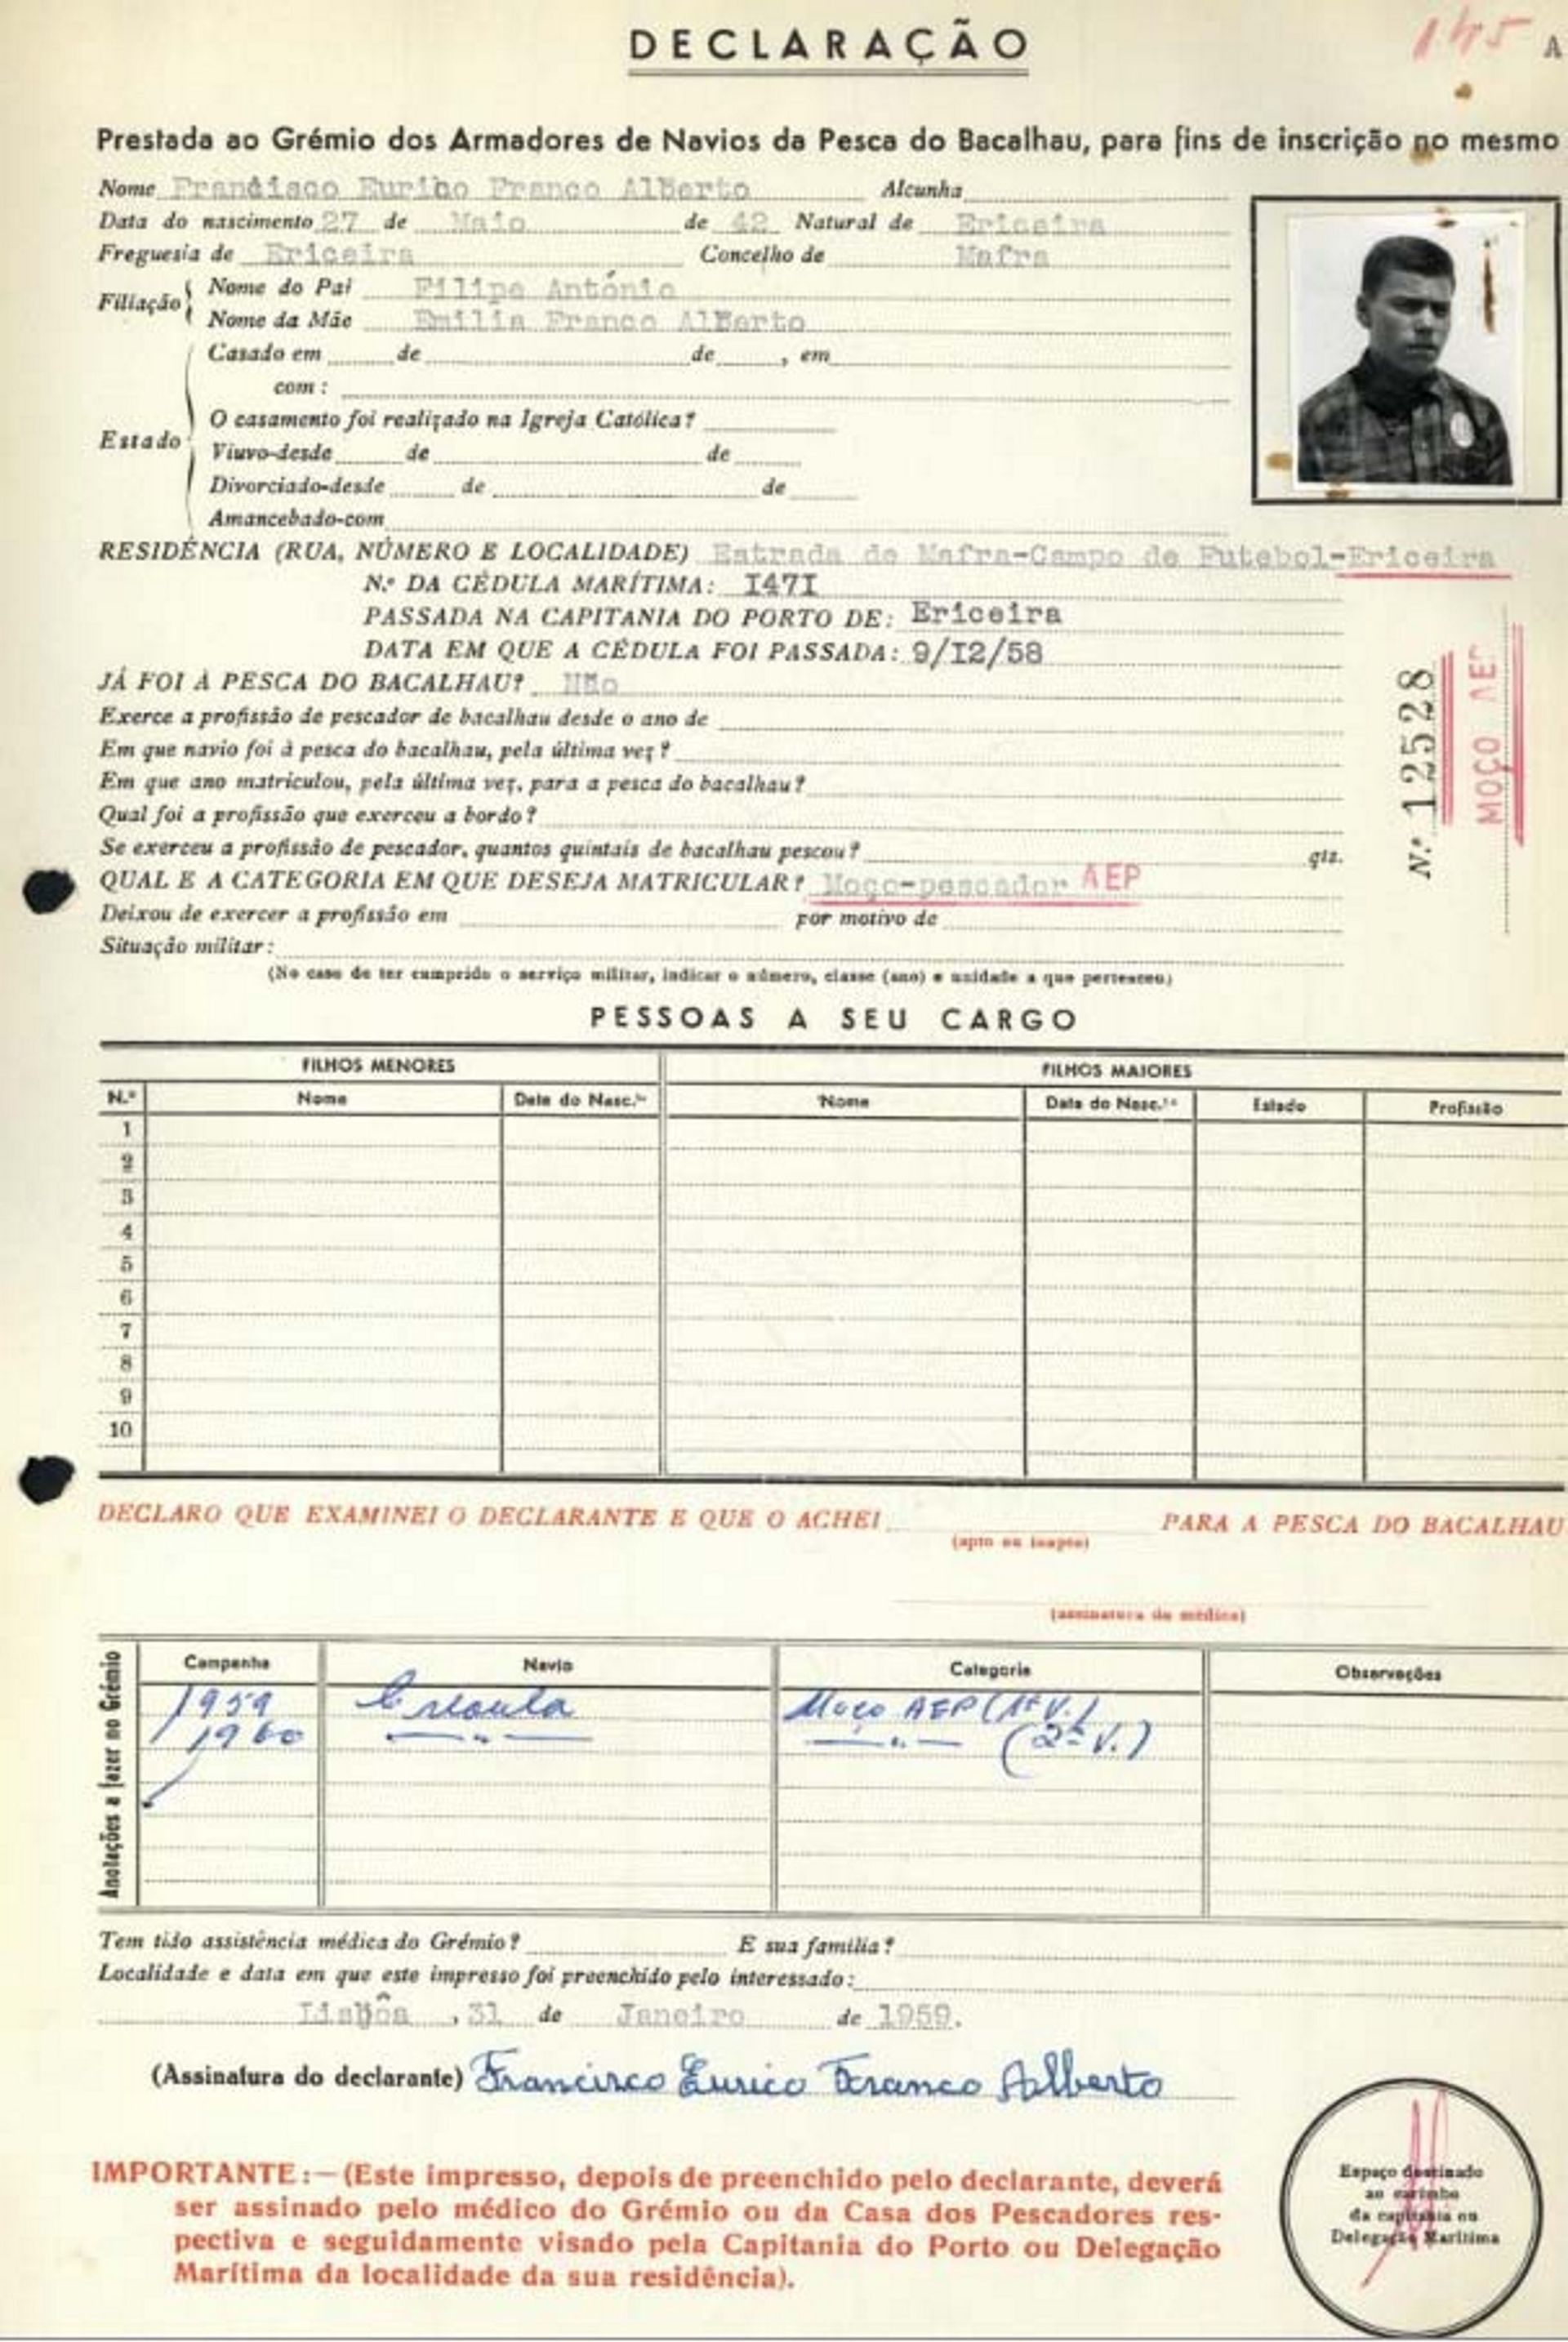 DECLARAÇÃO
145 A
Prestada ao Grémio dos Armadores de Navios da Pesca do Bacalhau, para fins de inscrição no mesmo
Nome Francisco Eurico Franco Alberto Alcunha
Data do nascimento 27 de Maio de 42 Natural de Ericeira
Freguesia de Ericeira Concelho de Mafra
Filiação
Nome do Pai Filipe António
Nome da Mãe Emilia Franco Alberto
Estado
Casado em de de , em
com:
O casamento foi realizado na Igreja Católica?
Viuvo-desde de de
Divorciado-desde de de
Amancebado-com
RESIDÊNCIA (RUA, NÚMERO E LOCALIDADE) Estrada de Mafra-Campo de Futebol-Ericeira
N.º DA CÉDULA MARÍTIMA: I47I
PASSADA NA CAPITANIA DO PORTO DE: Ericeira
DATA EM QUE A CÉDULA FOI PASSADA: 9/I2/58
JÁ FOI À PESCA DO BACALHAU? Não
Exerce a profissão de pescador de bacalhau desde o ano de
Em que navio foi à pesca do bacalhau, pela última vez?
Em que ano matriculou, pela última vez, para a pesca do bacalhau?
Qual foi a profissão que exerceu a bordo?
Se exerceu a profissão de pescador, quantos quintais de bacalhau pescou? qtz.
QUAL E A CATEGORIA EM QUE DESEJA MATRICULAR? Moço-pescador AEP
Deixou de exercer a profissão em por motivo de
Situação militar:
(No caso de ter cumprido o serviço militar, indicar o número, classe (ano) e unidade a que pertenceu)
N.º 12528
MOÇO AEP
PESSOAS A SEU CARGO
FILHOS MENORES FILHOS MAIORES
N.º Nome Data do Nasc.to Nome Data do Nasc.to Estado Profissão
1
2
3
4
5
6
7
8
9
10
DECLARO QUE EXAMINEI O DECLARANTE E QUE O ACHEI PARA A PESCA DO BACALHAU
(apto ou inapto)
(assinatura do médico)
Anotações a fazer no Grémio
Campanha Navio Categoria Observações
1959 Creoula Moço AEP (1ª V.)
1960 —"— —"— (2ª V.)
Tem tido assistência médica do Grémio? E sua família?
Localidade e data em que este impresso foi preenchido pelo interessado:
Lisbôa , 31 de Janeiro de 1959.
(Assinatura do declarante) Francisco Eurico Franco Alberto
IMPORTANTE:—(Este impresso, depois de preenchido pelo declarante, deverá
ser assinado pelo médico do Grémio ou da Casa dos Pescadores res-
pectiva e seguidamente visado pela Capitania do Porto ou Delegação
Marítima da localidade da sua residência).
Espaço destinado
ao carimbo
da capitania ou
Delegação Marítima